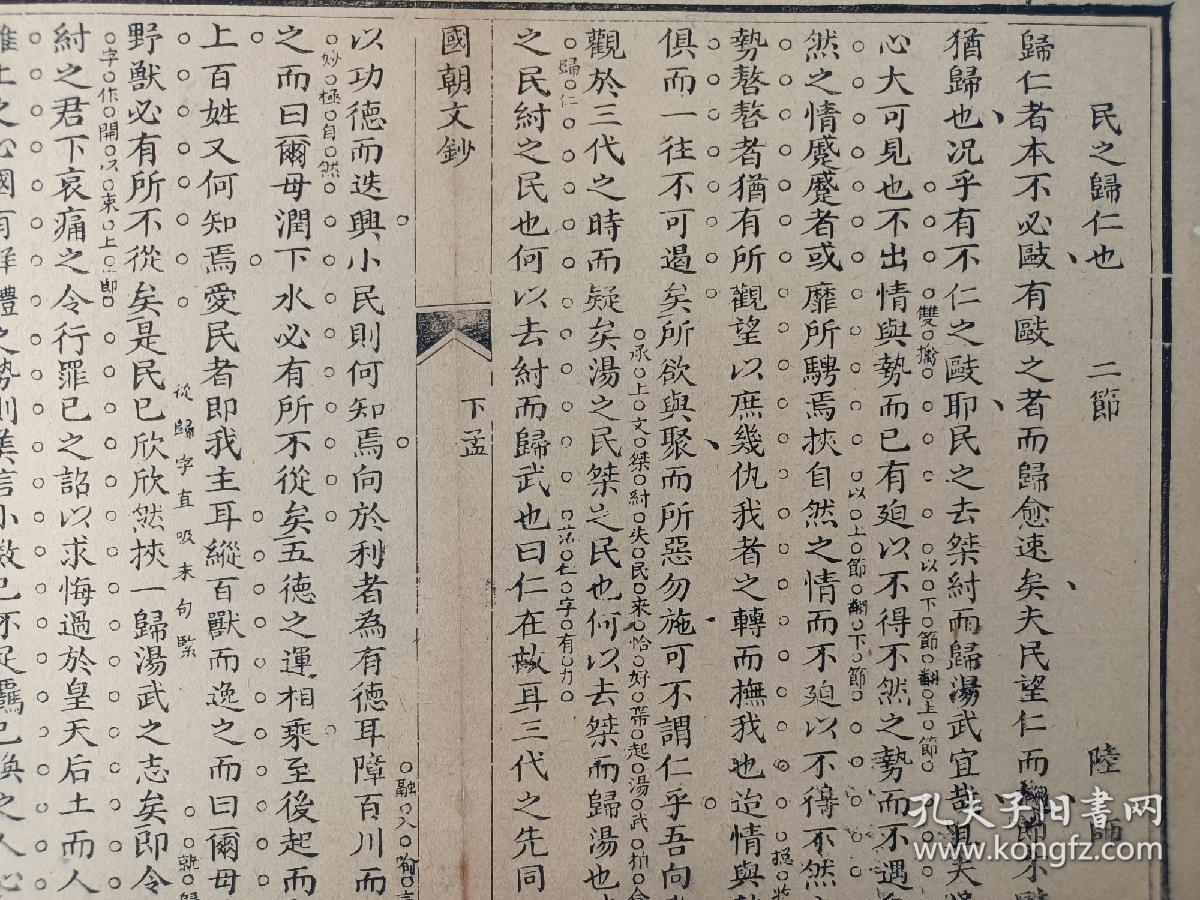 民之歸仁也 二節 陸師
歸仁者本不必敺有敺之者而歸愈速矣夫民望仁而
猶歸也况乎有不仁之敺耶民之去桀紂而歸湯武宜哉
雙擒
以下節翻上節
心大可見也不出情與勢而已有廹以不得不然之勢而不遇
以上節翻下節
然之情蹙蹙者或靡所騁焉挾自然之情而不廹以不得不然
勢嗸嗸者猶有所觀望以庶幾仇我者之轉而撫我也迨情與
俱而一往不可遏矣所欲與聚而所惡勿施可不謂仁乎吾向
承上文桀紂失民來恰好帶起湯武
觀於三代之時而疑矣湯之民桀之民也何以去桀而歸湯也
歸仁
點仁字有力
之民紂之民也何以去紂而歸武也曰仁在故耳三代之先同
國朝文鈔 下孟
融入喻言
以功德而迭興小民則何知焉向於利者為有德耳障百川而
妙極自然
之而曰爾毋潤下水必有所不從矣五德之運相乘至後起而
上百姓又何知焉愛民者即我主耳縱百獸而逸之而曰爾毋
從歸字直吸末句緊
野獸必有所不從矣是民已欣欣然挾一歸湯武之志矣即令
字作開以束上節
紂之君下哀痛之令行罪已之詔以求悔過於皇天后土而人
之心國有
孔夫子旧書网
www.kongfz.com